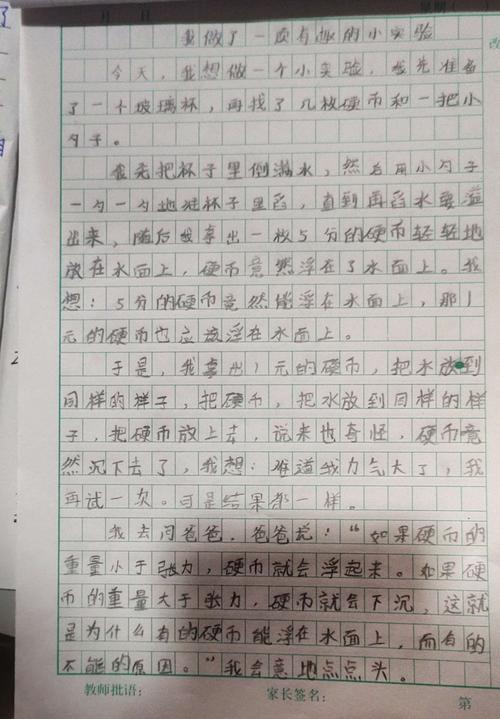 月 日 星期( )
我做了一项有趣的小实验
今天，我想做一个小实验，我先准备
了一个玻璃杯，再找了几枚硬币和一把小
勺子。
我先把杯子里倒满水，然后用小勺子
一勺一勺地往杯子里舀，直到再舀水要溢
出来，随后我拿出一枚5分的硬币轻轻地
放在水面上，硬币竟然浮在了水面上。我
想：5分的硬币竟然能浮在水面上，那1
元的硬币也应该浮在水面上。
于是，我拿出1元的硬币，把水放到
同样的样子，把硬币，把水放到同样的样
子，把硬币放上去，说来也奇怪，硬币竟
然沉下去了，我想：难道我力气大了，我
再试一次。可是结果都一样。
我去问爸爸，爸爸说：“如果硬币的
重量小于张力，硬币就会浮起来。如果硬
币的重量大于张力，硬币就会下沉，这就
是为什么有的硬币能浮在水面上，而有的
不能的原因。”我会意地点点头。
教师批语： 家长签名： 第